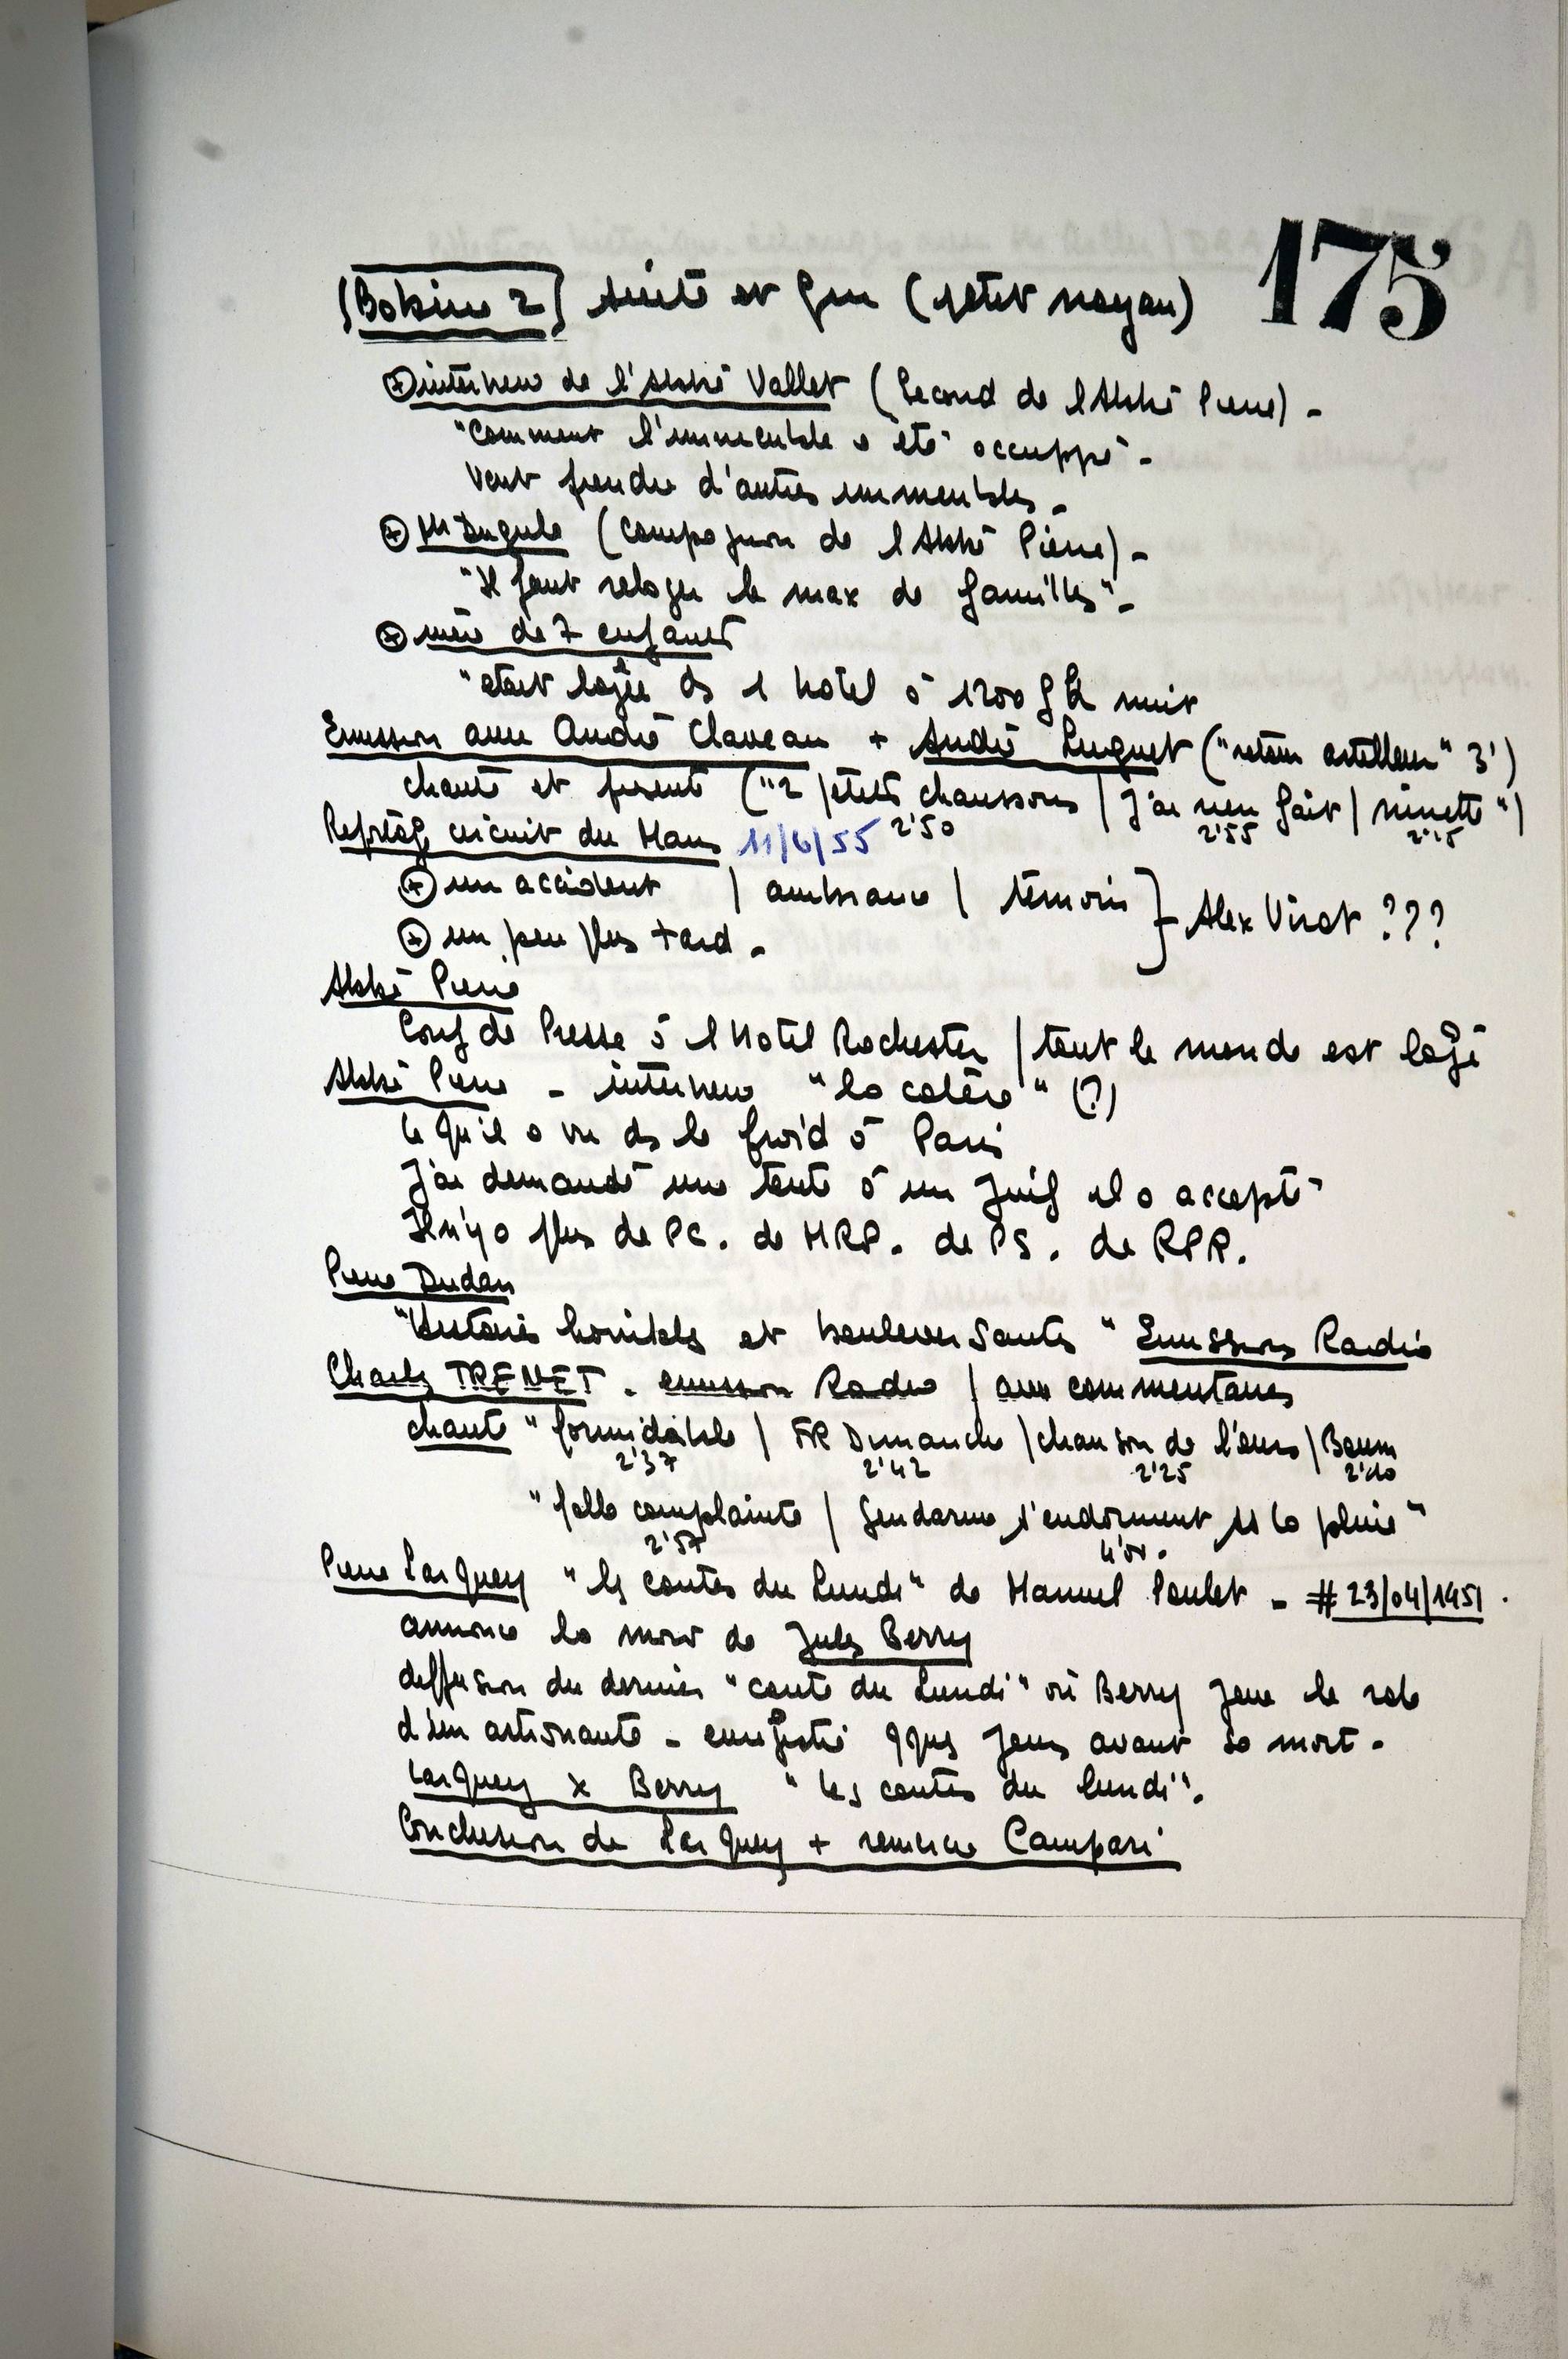 175
[Bobine 2] suite et fin (petit noyau)
⊕ interview de l'Abbé Vallet (Second de l'Abbé Pierre) -
"Comment l'immeuble a été occuppé -
Veut prendre d'autres immeubles -
⊕ Mr (compagnon de l'Abbé Pierre) -
"Il faut reloger le max de familles" -
⊕ mère de 7 enfants
"était logée ds 1 hotel à 1200 f la nuit
Emission avec André Claveau + André Luguet ( 3')
chante et présente ("2 petits chaussons / J'ai rien fait / ninette")
2'50 2'55 2'15
Reportage circuit du Mans 11/6/55
⊕ un accident / ambiance / témoin } Alex Virot ???
⊕ un peu plus tard -
Abbé Pierre
Conf de Presse à l'Hotel Rochester / tout le monde est logé
Abbé Pierre - interview "la colère" (?)
Ce qu'il a vu ds le froid à Paris
J'ai demandé une tente à un Juif il a accepté
Il n'y a plus de PC. de MRP. de PS. de RPR.
Pierre Dudan
"Histoires horribles et bouleversantes" Emission Radio
Charles TRENET - emission Radio / avec commentaires
chante "formidable / FR Dimanche / chanson de l'ours / Boum
2'37 2'42 2'25 2'40
"folle complainte / Gendarme s'endorment ss la pluie"
2'57
Pierre Larquey "les contes du Lundi" de Manuel Poulet - # 23/04/1951.
annonce la mort de Jules Berry
diffusion du dernier "conte du Lundi" où Berry joue le role
d'un - enregistré qques jours avant sa mort -
Larquey x Berry "les contes du lundi".
Conclusion de Larquey + remercie Campari